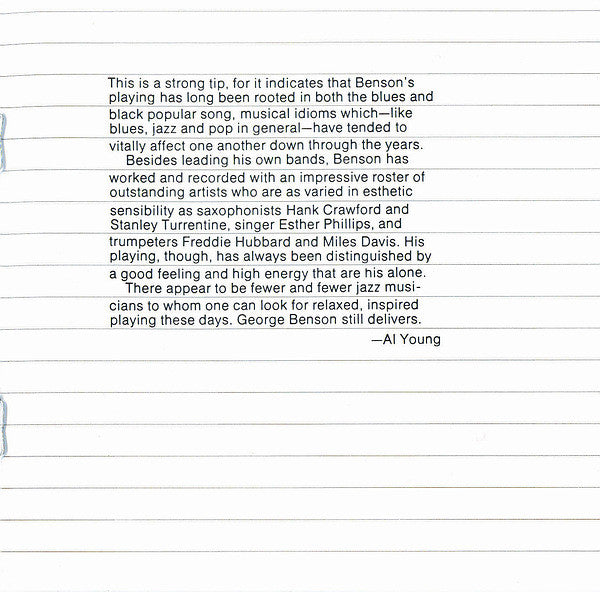 This is a strong tip, for it indicates that Benson's
playing has long been rooted in both the blues and
black popular song, musical idioms which—like
blues, jazz and pop in general—have tended to
vitally affect one another down through the years.
Besides leading his own bands, Benson has
worked and recorded with an impressive roster of
outstanding artists who are as varied in esthetic
sensibility as saxophonists Hank Crawford and
Stanley Turrentine, singer Esther Phillips, and
trumpeters Freddie Hubbard and Miles Davis. His
playing, though, has always been distinguished by
a good feeling and high energy that are his alone.
There appear to be fewer and fewer jazz musi-
cians to whom one can look for relaxed, inspired
playing these days. George Benson still delivers.
—Al Young